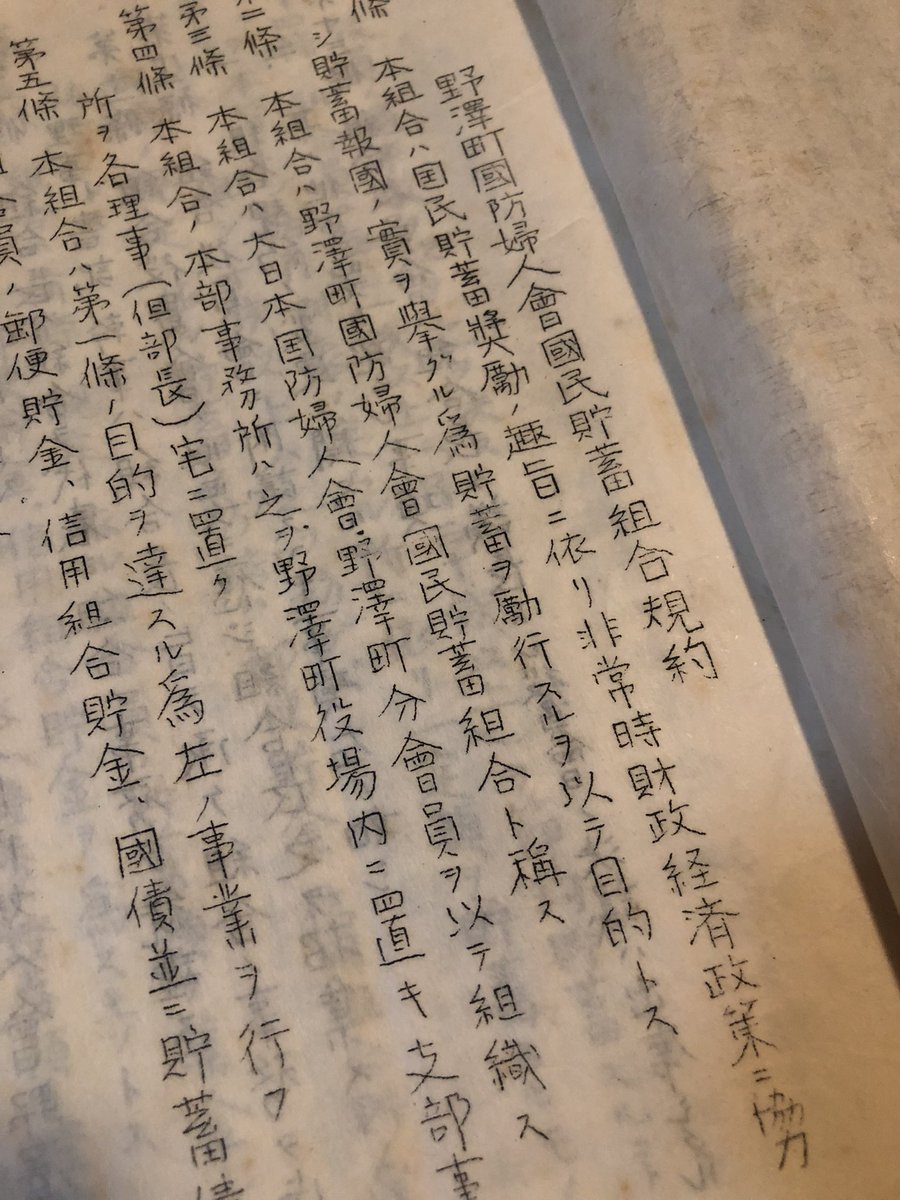 野澤町國防婦人會國民貯蓄組合規約
條　本組合ハ国民貯蓄奬勵ノ趣旨ニ依リ非常時財政経済政策ニ協力
ナシ貯蓄報國ノ實ヲ擧グル爲貯蓄ヲ勵行スルヲ以テ目的トス
二條　本組合ハ野澤町國防婦人會國民貯蓄組合ト稱ス
第三條　本組合ハ大日本国防婦人會野澤町分會員ヲ以テ組織ス
第四條　本組合ノ本部事務所ハ之ヲ野澤町役場内ニ置キ支部事
所ヲ各理事(但部長)宅ニ置ク
第五條　本組合ハ第一條ノ目的ヲ達スル爲左ノ事業ヲ行フ
合員ノ郵便貯金、信用組合貯金、國債並ニ貯蓄債